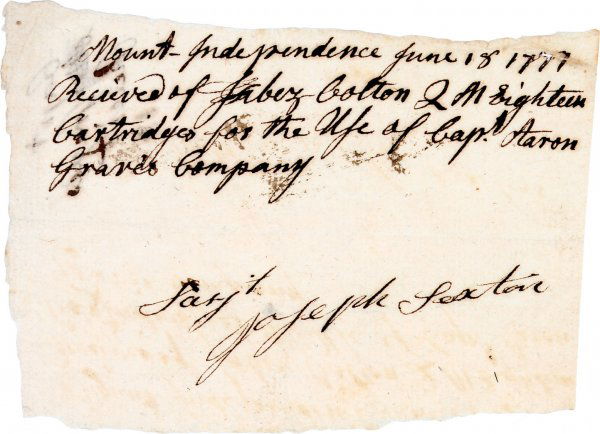 Mount Independence June 18 1777
Recieved of Jabez Colton Q M Eighteen
Cartridges for the Use of Capt. Aaron
Graves Company
Sarjt
Joseph Sexton